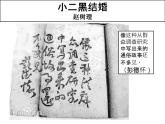 小二黑结婚
赵树理
像这种从群
众调查研究
中写出来的
通俗故事还
不多见。
（彭德怀）
像这种从群
众调查研究
中写出来的
通俗故事还
不多见
彭德怀